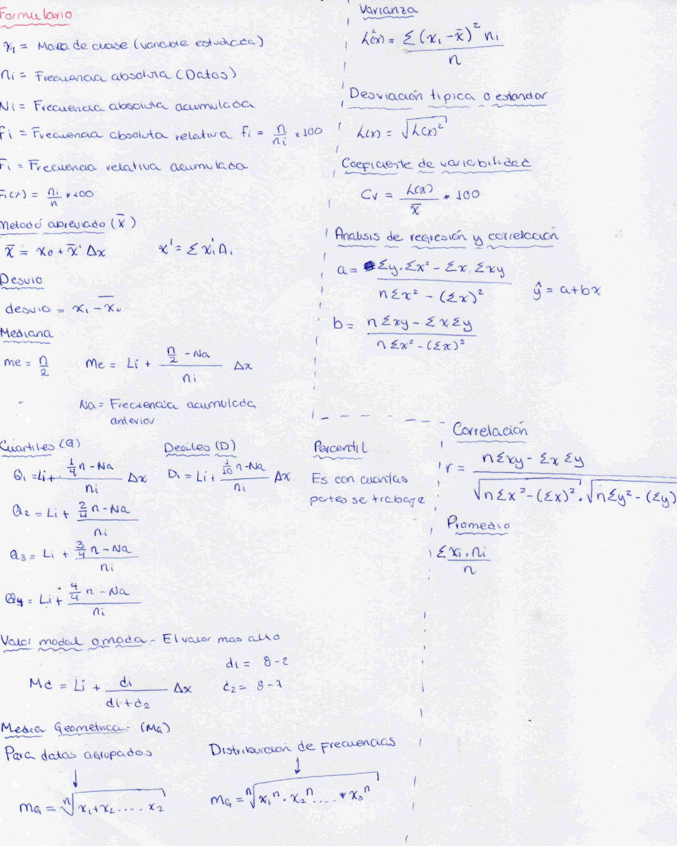 Formulario
x₁ = Marca de clase (variable estudiada)
ni = Frecuencia absoluta (Datos)
Ni = Frecuencia absoluta acumulada
fi = Frecuencia absoluta relativa fi = n/ni * 100
Fi = Frecuencia relativa acumulada
= ni/n * 100
Metodo abreviado (x̄)
x̄ = x₀ + x̄' Δx
x' = Σ x'₁
Desvio
desvio = x₁ - x̄₀
Mediana
me = n/2
Me = Li + (n/2 - Na)/ni Δx
Na = Frecuencia acumulada
anterior
Cuartiles (Q)
Q₁ = Li + (1/4 n - Na)/ni Δx
Q₂ = Li + (2/4 n - Na)/ni
Q₃ = Li + (3/4 n - Na)/ni
Q₄ = Li + (4/4 n - Na)/ni
Deciles (D)
D₁ = Li + (1/10 n - Na)/ni Δx
Percentil
Es con cuantas
partes se trabaje
Valor modal o moda - El valor mas alto
Md = Li + d₁/(d₁+d₂) Δx
d₁ = 8-2
d₂ = 8-7
Media Geometrica: (MG)
Para datos agrupados
MG = ⁿ√(x₁+x₂ .... x₂)
Distribucion de Frecuencias
MG = ⁿ√(x₁ⁿ · x₂ⁿ .... * x₃ⁿ)
Varianza
= Σ(x₁ - x̄)² ni / n
Desviación tipica o estandar
Coeficiente de variabilidad
* 100
Analisis de regresión y correlación
a = (Σy · Σx² - Σx · Σxy) / (nΣx² - (Σx)²)
ŷ = a + bx
b = (nΣxy - ΣxΣy) / (nΣx² - (Σx)²)
Correlación
r = (nΣxy - ΣxΣy) / (√(nΣx² - (Σx)²) · √(nΣy² - (Σy)
Promedio
Σ x₁ · ni / n